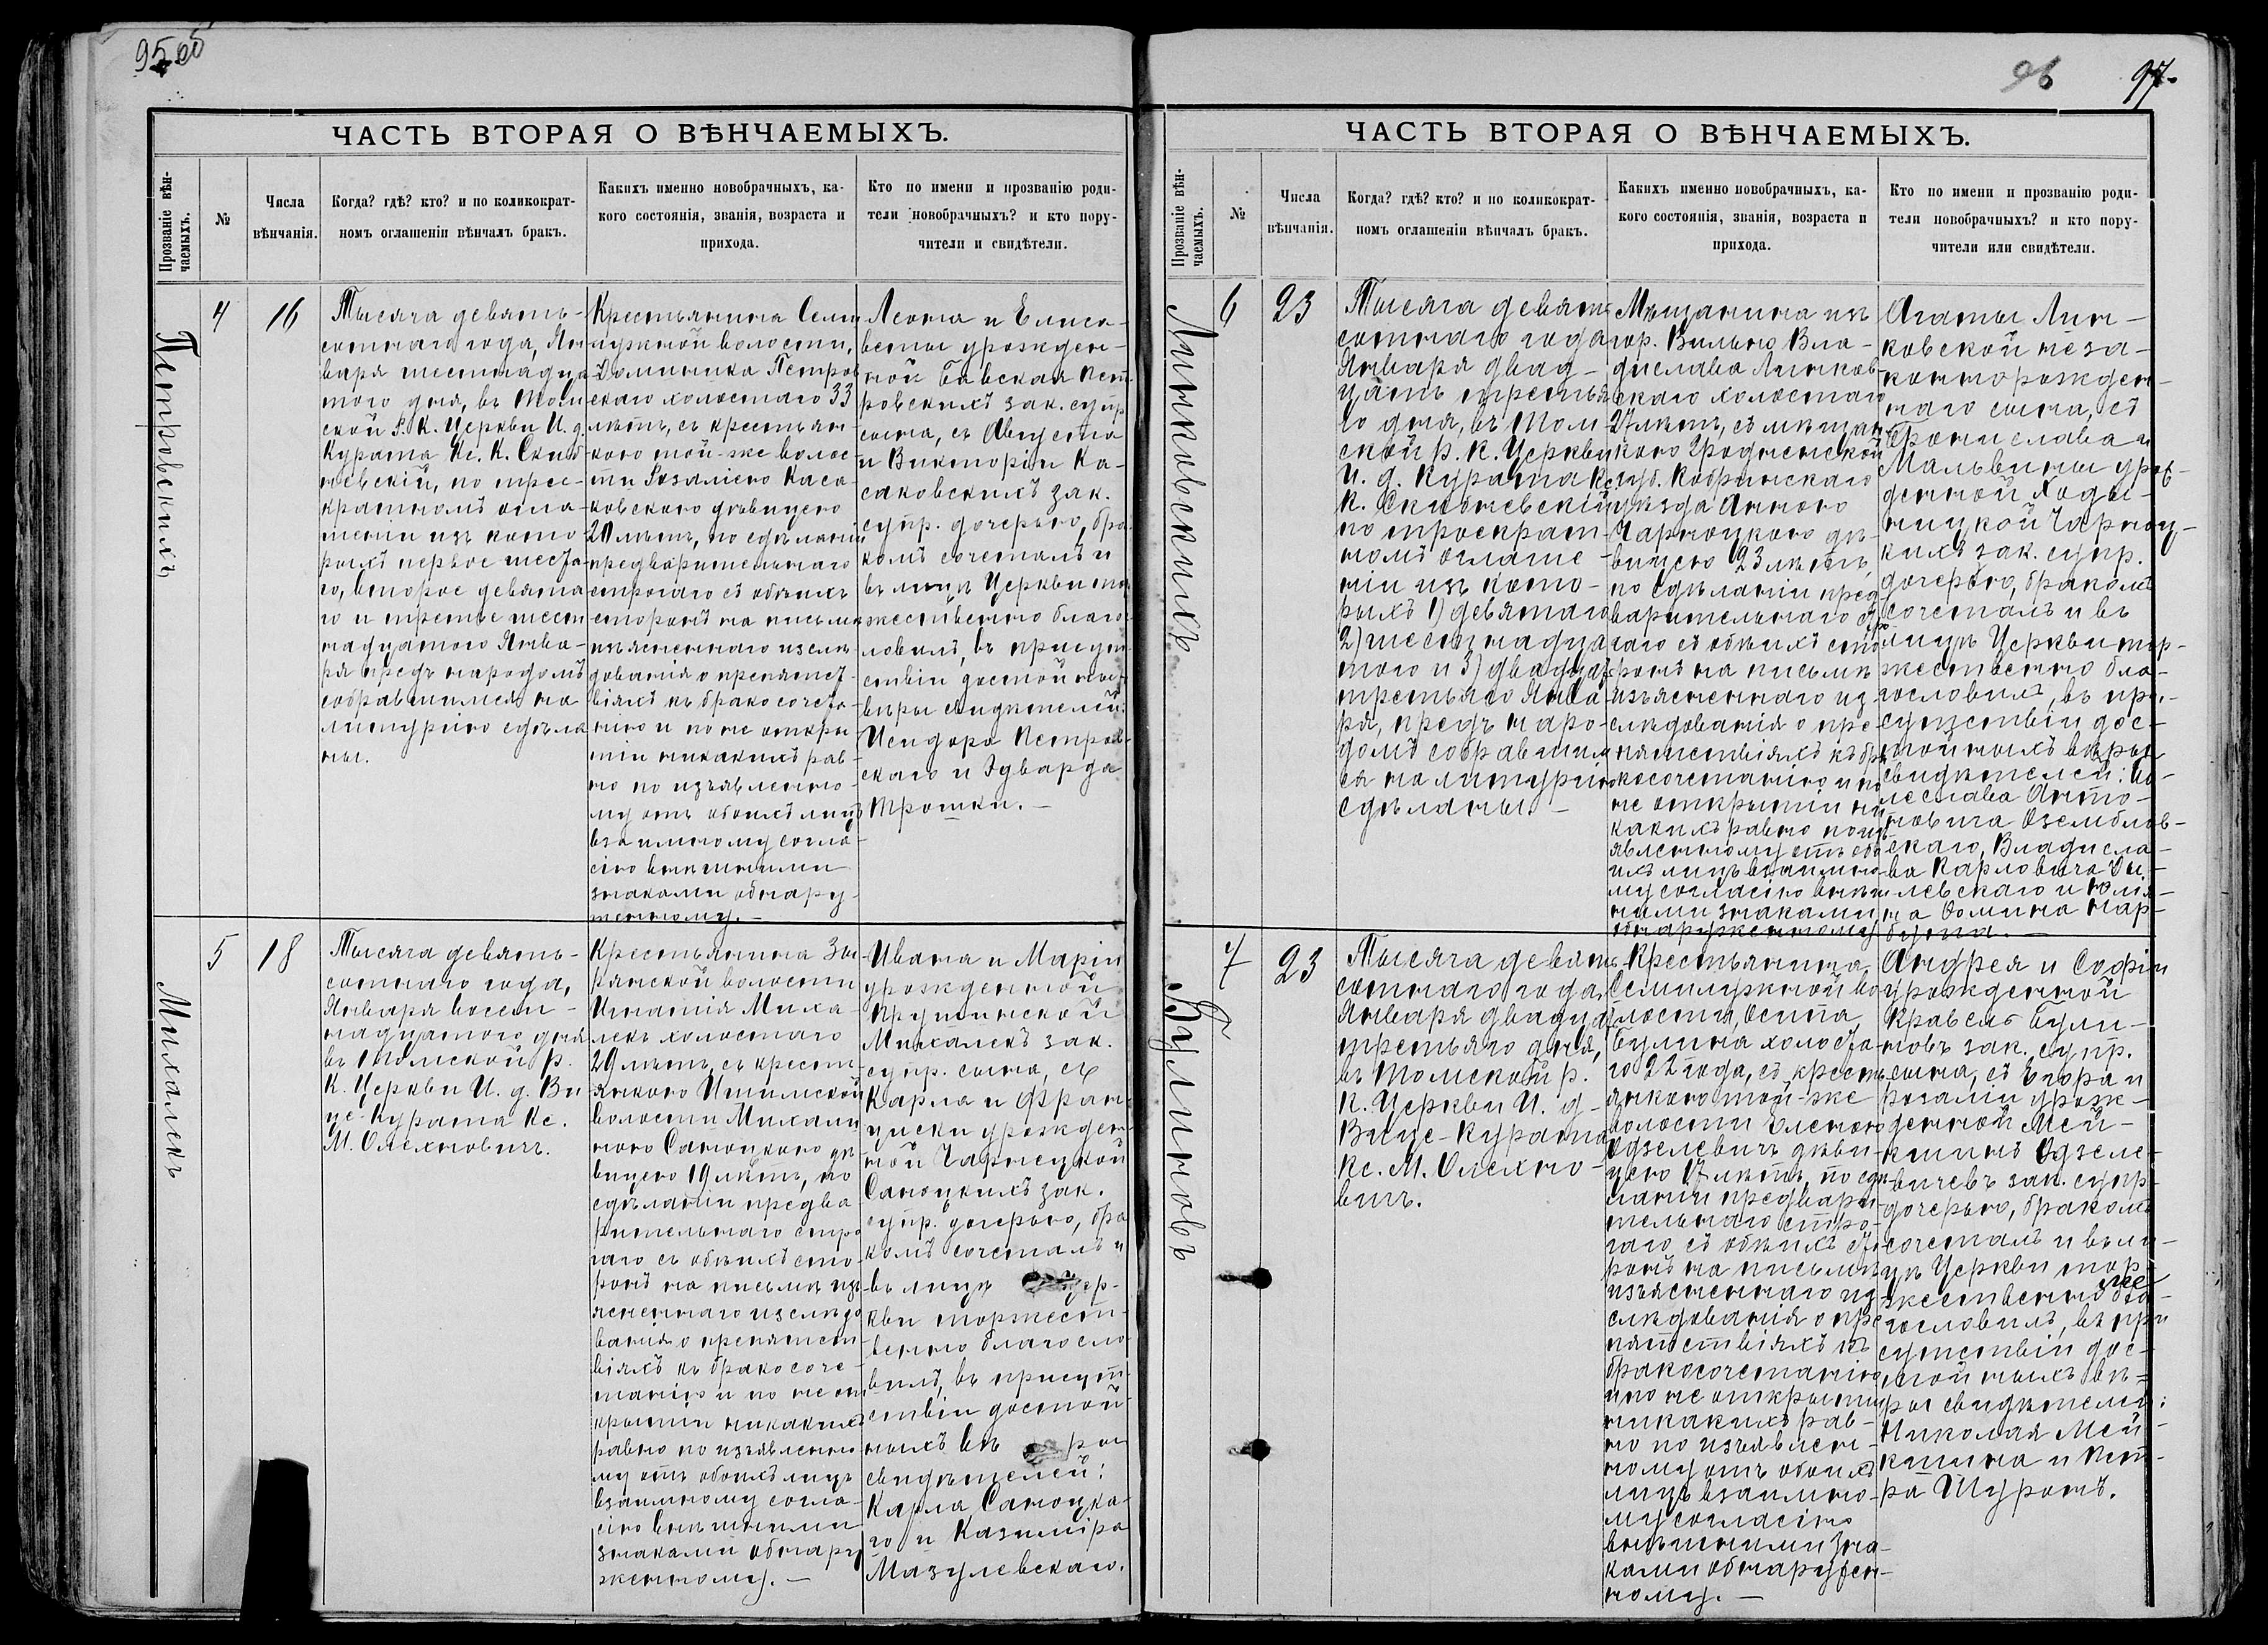 95 об
ЧАСТЬ ВТОРАЯ О ВѢНЧАЕМЫХЪ.
Прозваніе вѣн-
чаемыхъ.
№
Числа
вѣнчанія.
Когда? гдѣ? кто? и по коликократ-
номъ оглашеніи вѣнчалъ бракъ.
Какихъ именно новобрачныхъ, ка-
кого состоянія, званія, возраста и
прихода.
Кто по имени и прозванію роди-
тели новобрачныхъ? и кто пору-
чители и свидѣтели.
Петровскихъ
4
16
Тысяча девять-
сотнаго года, Ян
варя шестнадца
таго дня, въ Том
ской Р. К. Церкви И. д.
Курата Кс. К. Скиб
невскій, по трое-
кратномъ огла-
шеніи изъ кото
рыхъ первое шеста
го, второе девята
го и третье шест
надцатого Янва-
ря предъ народомъ
собравшимся на
литургію сдѣла
ны.
Крестьянина Семи
лужной волости,
Доминика Петров
скаго холостаго 33
лѣтъ, съ крестьян
кою той-же волос
ти Розаліею Каса
ковского дѣвицею
20 лѣтъ, по сдѣланіи
предварительнаго
строгаго съ обѣихъ
сторонъ на письмѣ
изъясненнаго изслѣ
дованія о препятст
віяхъ къ бракосочета
нію и по не откры
тіи никакихъ рав
но по изъявленно
му отъ обоихъ лицъ
взаимному согла
сію внѣшними
знаками обнару-
женному. —
Леона и Елиса-
веты урожден-
ной Бавская Пет
ровскихъ зак. супр
сына, съ Августа
и Викторіи Ка-
саковскихъ зак.
супр. дочерью, бра
комъ сочеталъ и
въ лицѣ Церкви то
жественно благо
ловилъ, въ присут
ствіи достойны
вѣры свидѣтелей:
Исидора Петров-
скаго и Эдварда
Трошки. —
Михалекъ
5
18
Тысяча девять-
сотнаго года,
Января восем-
надцатого дня
въ Томской Р.
К. Церкви И. д. Ви
це-Курата Кс.
М. Олехновичъ.
Крестьянина Зы
рянской волости
Игнатія Миха-
лекъ холостаго
29 лѣтъ, съ кресть
янкою Ишимской
волости Михали
ною Саноцкого дѣ
вицею 19 лѣтъ, по
сдѣланіи предва
рительнаго стро
гаго съ обѣихъ сто
ронъ на письмѣ изъ
ясненнаго изслѣдо
ванія о препятст
віяхъ къ бракосоче
танію и по не от
крытіи никакихъ
равно по изъявленно
му отъ обоихъ лицъ
взаимному согла-
сію внѣшними
знаками обнару
женному. —
Ивана и Маріи
урожденной
Прушинской
Михалекъ зак.
супр. сына, съ
Карла и Фран-
циски урожден
ной Чарнецкой
Саноцкихъ зак.
супр. дочерью, бра
комъ сочеталъ и
въ лицѣ Цер-
кви торжест-
венно благосло
вилъ, въ присут-
ствіи достой-
ныхъ вѣ ры
свидѣтелей:
Карла Саноцка-
го и Казиміра
Мазулевскаго.
96 97.
ЧАСТЬ ВТОРАЯ О ВѢНЧАЕМЫХЪ.
Прозваніе вѣн-
чаемыхъ.
№
Числа
вѣнчанія.
Когда? гдѣ? кто? и по коликократ-
номъ оглашеніи вѣнчалъ бракъ.
Какихъ именно новобрачныхъ, ка-
кого состоянія, званія, возраста и
прихода.
Кто по имени и прозванію роди-
тели новобрачныхъ? и кто пору-
чители или свидѣтели.
Линковскихъ
6
23
Тысяча девять
сотнаго года
Января двад-
цать третья
го дня, въ Том
ской Р. К. Церкви
И. д. Курата Кс.
К. Скибневскій
по троекрат-
номъ оглаше
ніи изъ кото-
рыхъ 1) девятаго
2) шестнадца
того и 3) двадцат
третьяго Янва
ря, предъ наро-
домъ собравшим
ся на литургію
сдѣланы. —
Мѣщанина изъ
гор. Вильно Вла-
дислава Линков-
скаго холостаго
27 лѣтъ, съ мѣщан
кою Гродненской
губ. Кобринскаго
уѣзда Анною
Чарноцкого дѣ-
вицею 23 лѣтъ,
по сдѣланіи пред
варительнаго стро
гаго съ обѣихъ сто
ронъ на письмѣ
изъясненнаго из-
слѣдованія о пре
пятствіяхъ къ бра
косочетанію и по
не открытіи ни
какихъ равно по изъ
явленному отъ обо
ихъ лицъ взаимно
му согласію внѣш
ними знаками
обнаруженному
Агаты Лин-
ковской неза-
коннорожден-
наго сына, съ
Бронислава и
Мальвины урож-
денной Ходы-
ницкой Чарноц-
кихъ зак. супр.
дочерью, бракомъ
сочеталъ и въ
лицѣ Церкви тор-
жественно бла-
гословилъ, въ при-
сутствіи дос-
тойныхъ вѣры
свидѣтелей: Бо-
леслава Анто-
новича Оземблов-
скаго, Владисла-
ва Карловича Вы-
левскаго и Юлі-
на Фомина Нар-
бута. —
Булиновъ
7
23
Тысяча девять
сотнаго года,
Января двадца
третьяго дня,
въ Томской Р.
К. Церкви И. д-
Вице-Курата
Кс. М. Олехно-
вичъ.
Крестьянина
Семилужной во
лости, Осипа
Булина холоста-
го 22 года, съ кресть
янкою той-же
волости Еленою
Одзелевичъ дѣви-
цею 17 лѣтъ, по сдѣ
ланіи предвари-
тельнаго стро-
гаго съ обѣихъ сто
ронъ на письмѣ
изъясненнаго из
слѣдованія о пре
пятствіяхъ къ
бракосочетанію
и по не открытіи
никакихъ рав-
но по изъявлен-
ному отъ обоихъ
лицъ взаимно-
му согласію
внѣшними зна-
ками обнаружен-
ному. —
Андрея и Софіи
урожденной
Кравель Були-
новъ зак. супр.
сына, съ Егора и
Розаліи урож-
денной Мей-
кшинъ Одзеле-
вичевъ зак. супр.
дочерью, бракомъ
сочеталъ и въ ли-
цѣ Церкви тор-
жественно бла-
гословилъ, въ при
сутствіи дос-
тойныхъ вѣ-
ры свидѣтелей:
Николая Мей-
кшина и Пет-
ра Шуронъ.